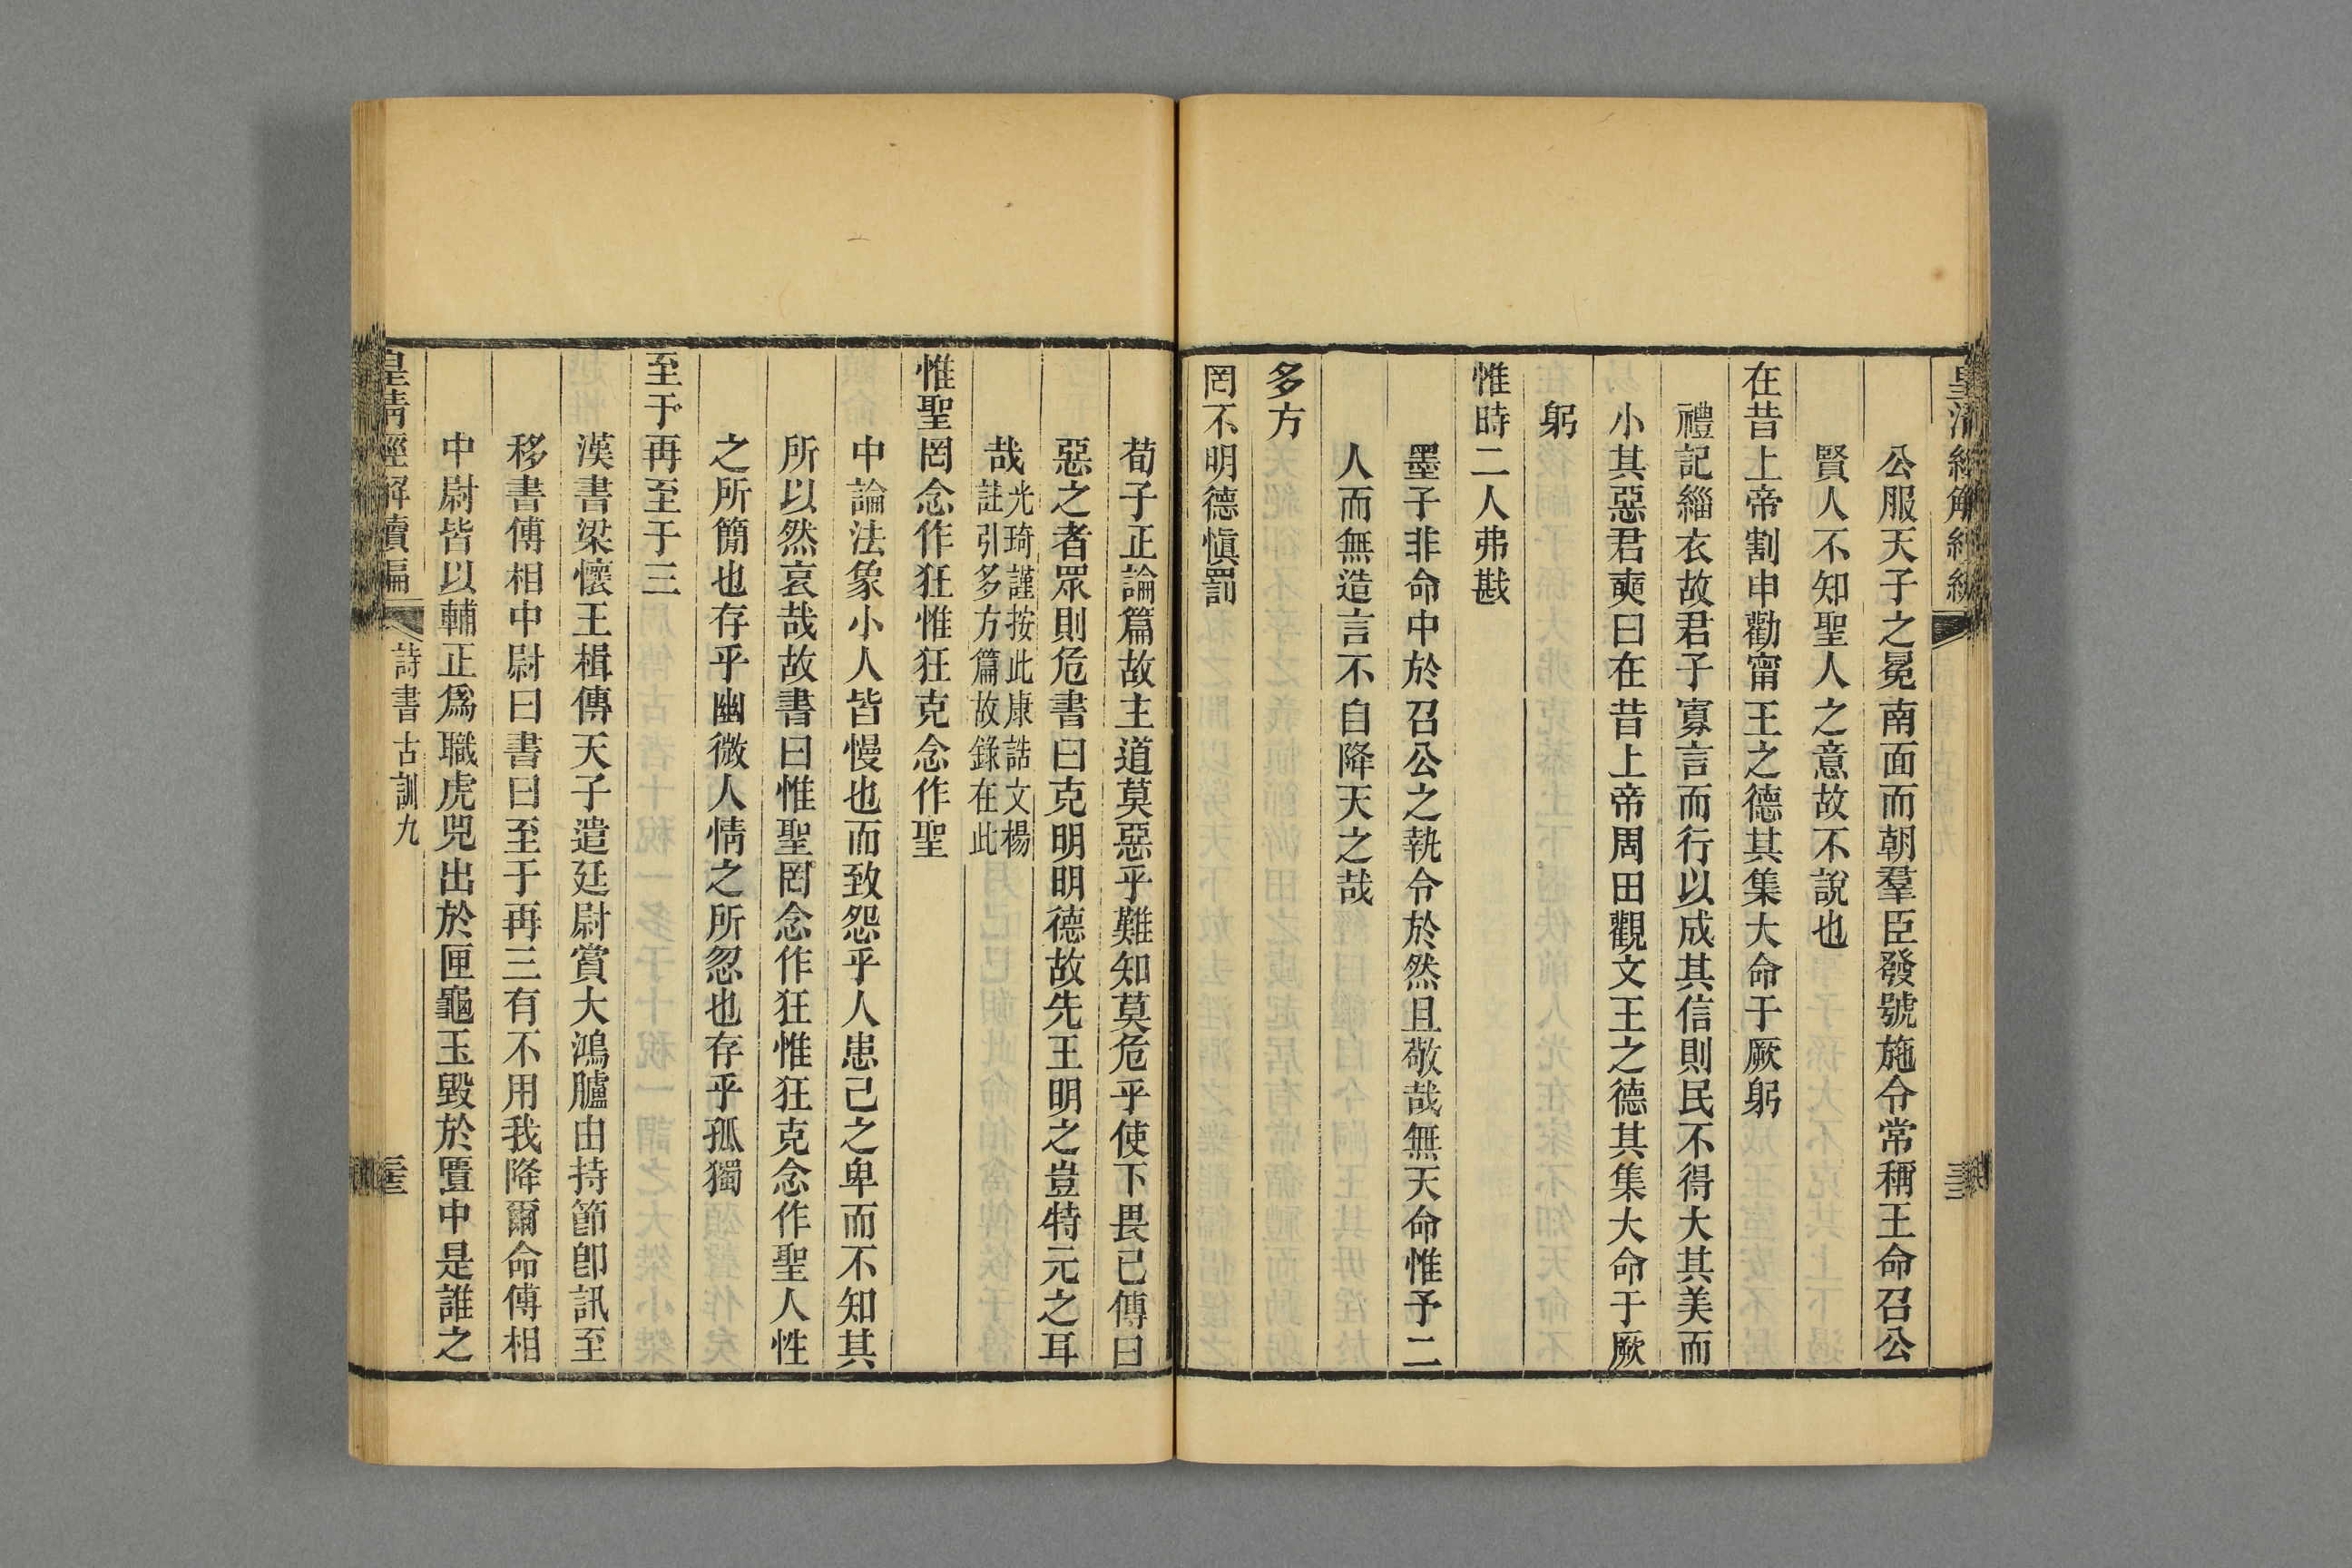 公服天子之冕南面而朝羣臣發號施令常稱王命召公
賢人不知聖人之意故不說也
在昔上帝割申勸甯王之德其集大命于厥躬
禮記緇衣故君子寡言而行以成其信則民不得大其美而
小其惡君奭曰在昔上帝周田觀文王之德其集大命于厥
躬
惟時二人弗戡
墨子非命中於召公之執令於然且敬哉無天命惟予二
人而無造言不自降天之哉
多方
罔不明德愼罰
荀子正論篇故主道莫惡乎難知莫危乎使下畏己傳曰
惡之者眾則危書曰克明明德故先王明之豈特元之耳
哉光琦謹按此康誥文楊
註引多方篇故錄在此
惟聖罔念作狂惟狂克念作聖
中論法象小人皆慢也而致怨乎人患己之卑而不知其
所以然哀哉故書曰惟聖罔念作狂惟狂克念作聖人性
之所簡也存乎幽微人情之所忽也存乎孤獨
至于再至于三
漢書梁懷王楫傳天子遣廷尉賞大鴻臚由持節卽訊至
移書傅相中尉曰書曰至于再三有不用我降爾命傅相
中尉皆以輔正爲職虎兕出於匣龜玉毀於匱中是誰之
皇清經解續編 詩書古訓九